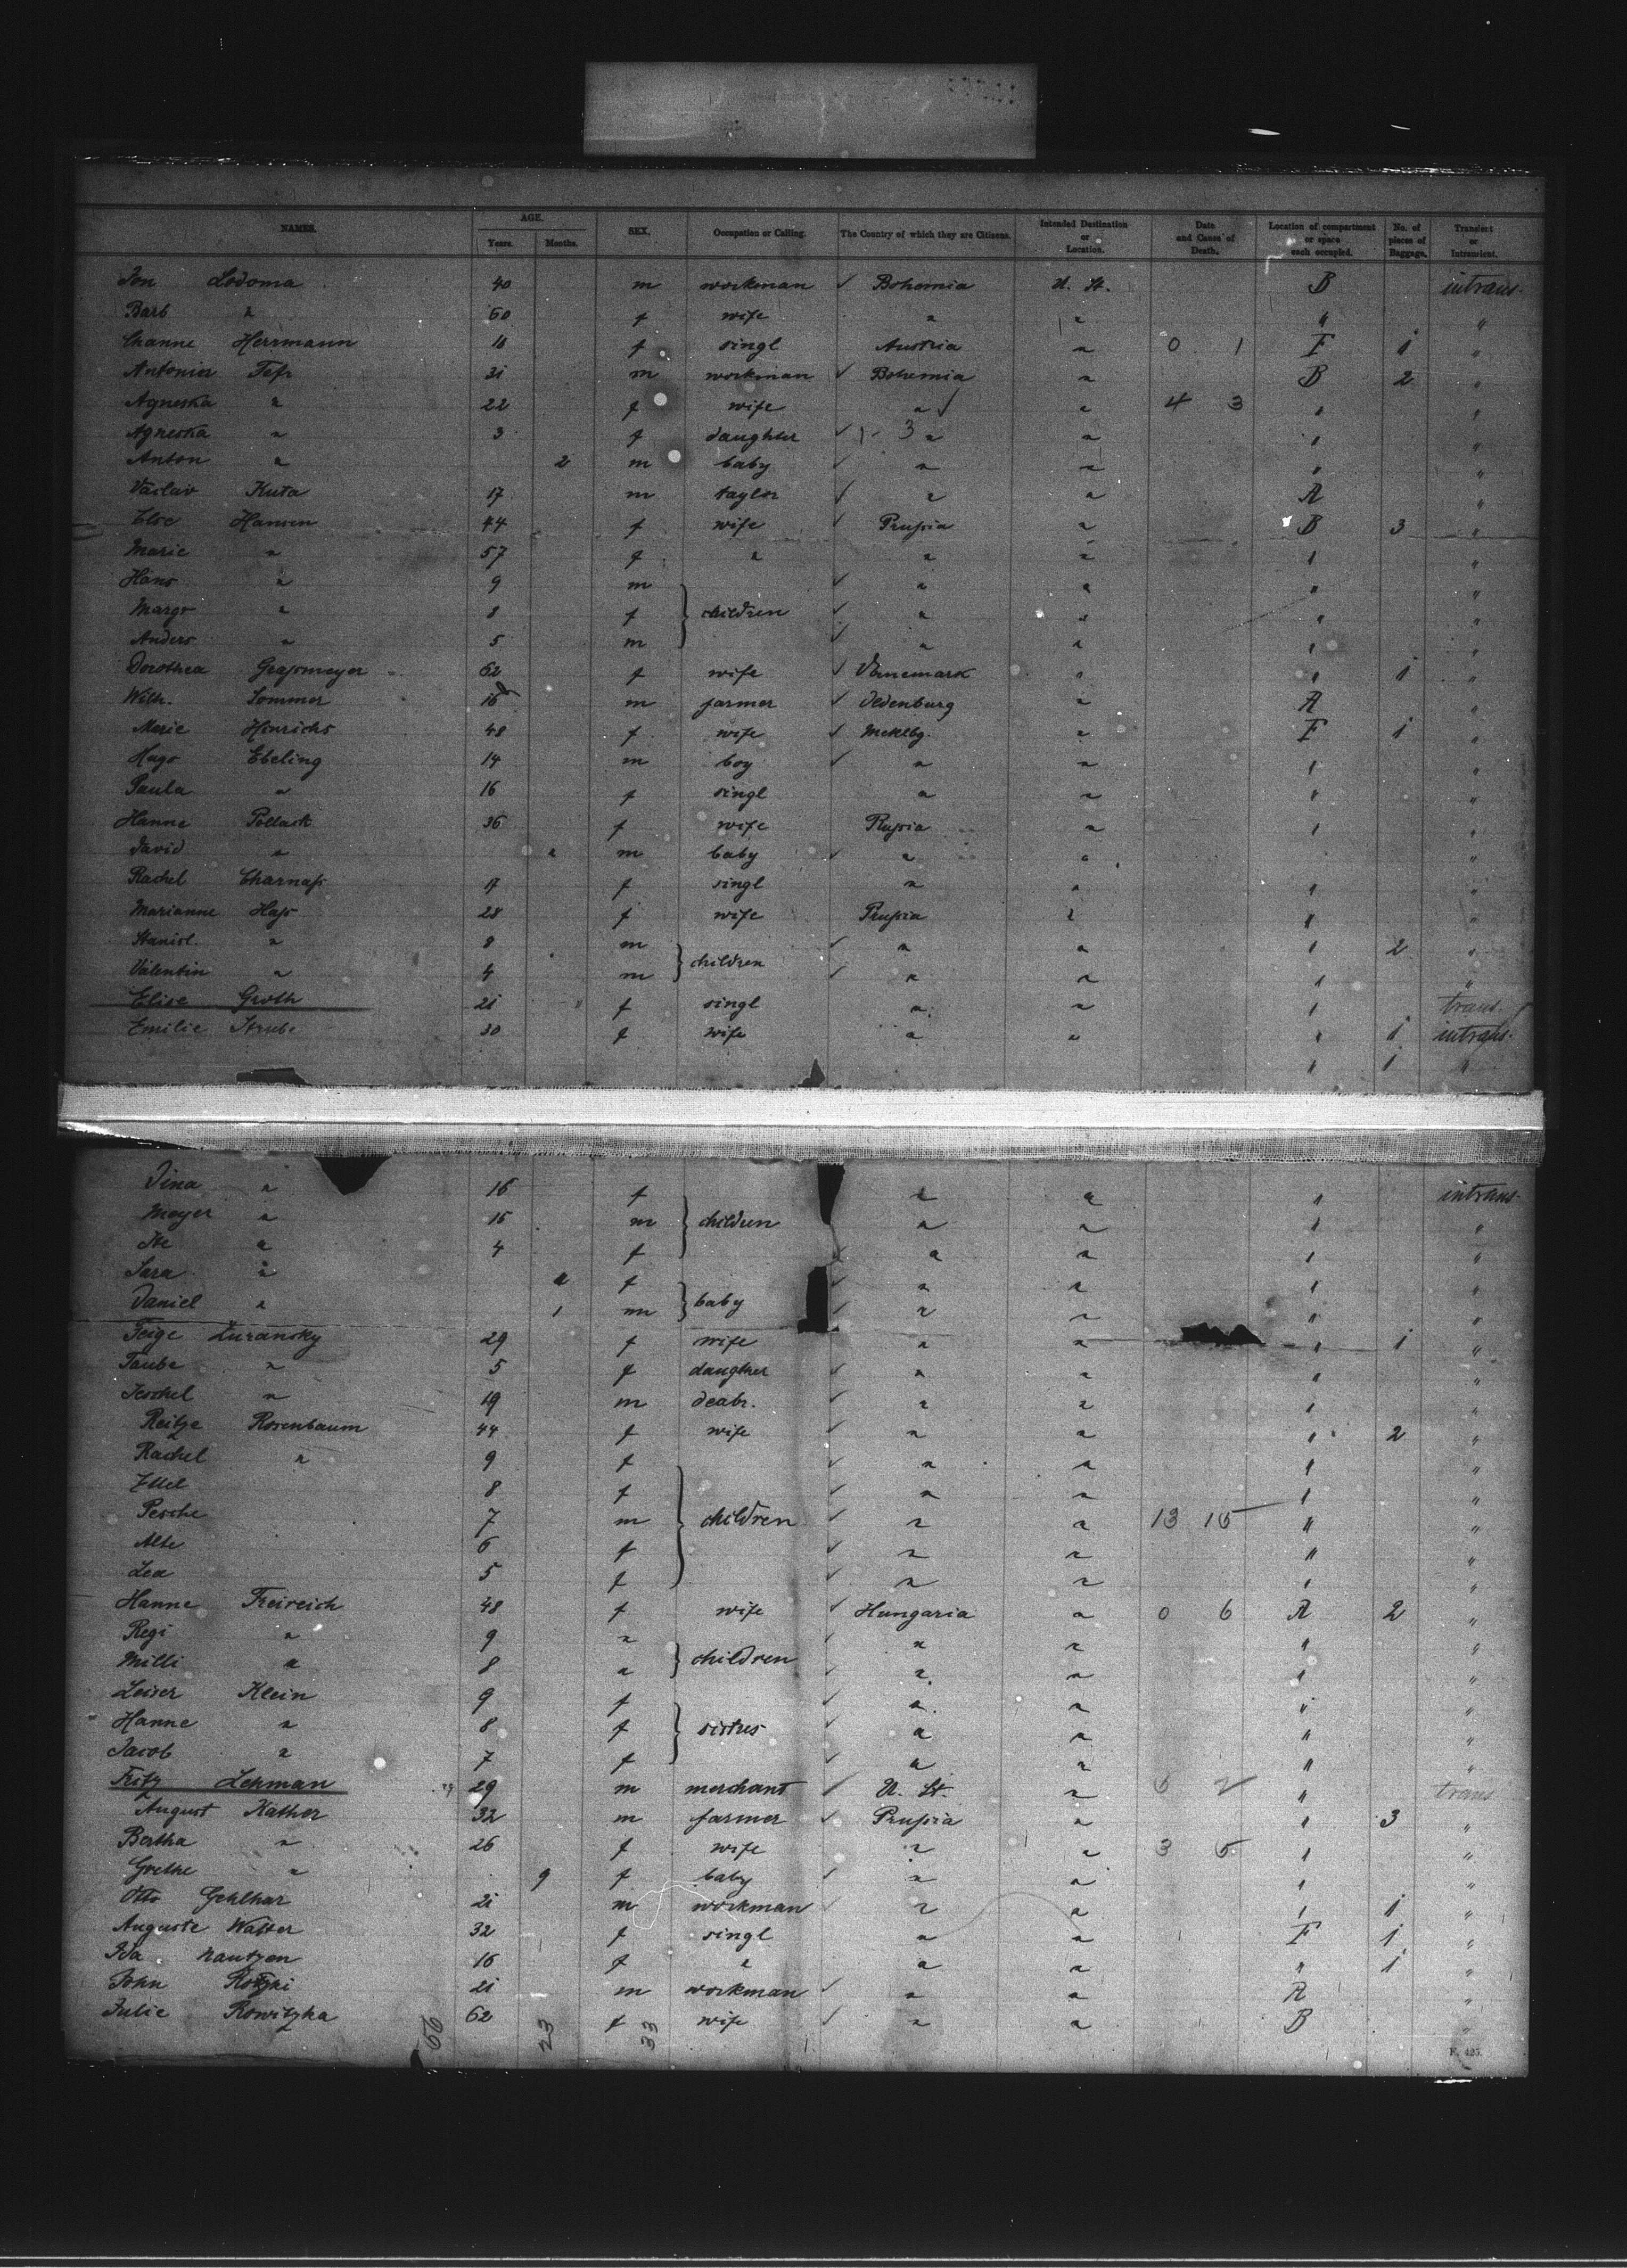 NAMES. AGE. SEX. Occupation or Calling. The Country of which they are Citizens. Intended Destination or Location. Date and Cause of Death. Location of compartment or space each occupied. No. of pieces of Baggage. Transient or Intransient.
Years. Months.
Lodoma 40 m workman ✓ Bohemia U. St. B intrans.
Barb " 60 f wife " " " "
Channe Herrmann f singl Austria " 0 1 F 1 "
31 m workman ✓ Bohemia " B 2 "
Agneska " 22 f wife " ✓ " 4 3 " "
Agneska " 3 f daughter ✓ 3 " " " "
Anton " 2 m baby ✓ " " " "
Vaclav Kuta 17 m taylor ✓ " " A "
Else Hansen 44 f wife ✓ Prussia " B 3 "
Marie " 57 f " " " " "
Hans " 9 m ✓ " " " "
Margr " 8 f children ✓ " " " "
Anders " 5 m ✓ " " " "
Dorothea Grassmeyer 62 f wife ✓ Danemark " " 1 "
Wilh. Sommer 16 m farmer ✓ Oldenburg " A "
Marie Hinrichs 48 f wife ✓ Mcklbg. " F 1 "
Hugo Ebeling 14 m boy ✓ " " " "
Paula " 16 f singl " " " "
Hanne Pollack 36 f wife Russia " " "
David " m baby ✓ " " "
Rachel Charnass 17 f singl " " " "
Marianne Hass 28 f wife Prussia " " "
Stanisl. " 8 m ✓ " " " 2 "
children
Valentin " 4 m ✓ " " " "
Elise Groth 21 f singl " " " trans.
Emilie Strube 30 f wife " " " 1 intrans.
" 1 "
Dina " 16 f " " " intrans.
Meyer " 15 m children " " " "
Ite " 4 f " " " "
Sara " f ✓ " " " "
Daniel " 1 m baby ✓ " " " "
Feige Zuransky 29 f wife " " " 1 "
Taube " 5 f daugther ✓ " " " "
19 m dealr. ✓ " " " "
Reitze Rosenbaum 44 f wife ✓ " " " 2 "
Rachel " 9 f ✓ " " " "
Ettel 8 f ✓ " " " "
Pesche 7 m children ✓ " " 13 15 " "
Alte 6 f ✓ " " " "
Lea 5 f ✓ " " " "
Hanne Freireich 48 f wife ✓ Hungaria " 0 6 A 2 "
Regi " 9 " ✓ " " " "
children
Milli " 8 " ✓ " " " "
Leiser Klein 9 f ✓ " " " "
Hanne " 8 f sistres ✓ " " " "
Jacob " 7 f ✓ " " " "
Fritz Lehman 29 m merchant ✓ U. St. " 6 2 " trans
August Kather 32 m farmer ✓ Prussia " " 3 "
Bertha " 26 f wife " " 3 5 " "
Grethe " 9 f baby ✓ " " " "
Otto Gehlhar 21 m workman ✓ " " " 1 "
Auguste Walter 32 f singl " " F 1 "
Ida Nautzen 16 f " " " " 1 "
John 21 m workman ✓ " " A "
Julie Rowitzka 62 f wife ✓ " " B "
56 23 33
F. 425.